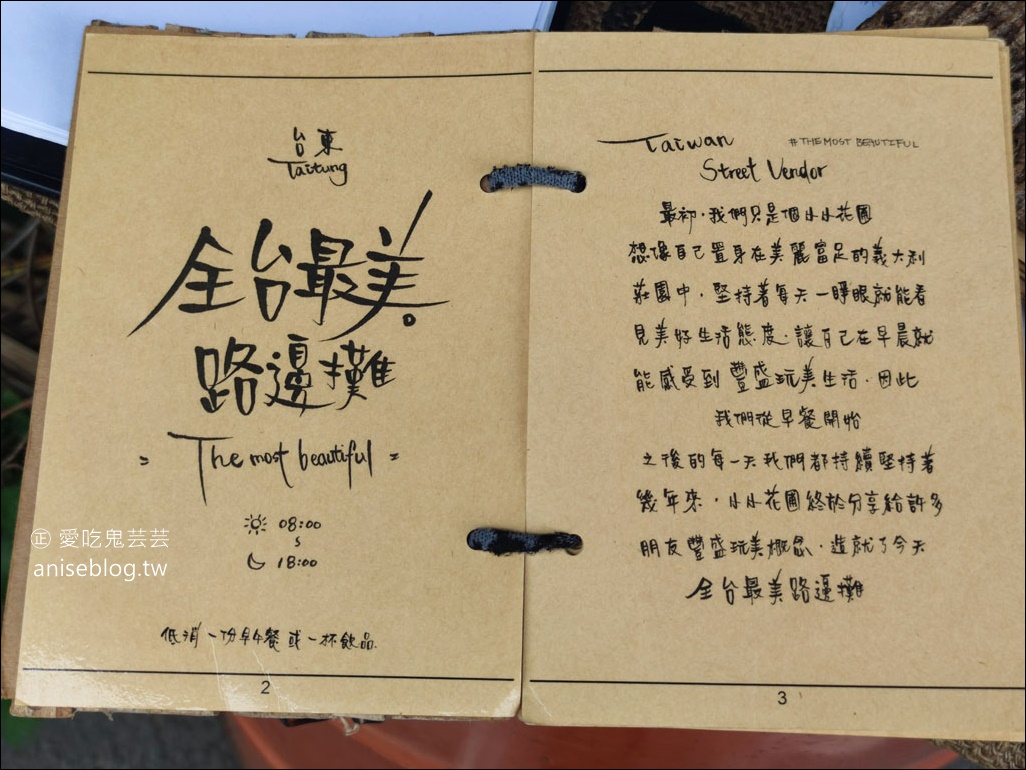 台東
Taitung
全台最美。
路邊攤
= The most beautiful =
08:00
~
18:00
低消一份早午餐或一杯飲品.
2
Taiwan
#THE MOST BEAUTIFUL
Street Vendor
最初,我們只是個小小花圃
想像自己置身在美麗富足的義大利
莊園中,堅持著每天一睜眼就能看
見美好生活態度,讓自己在早晨就
能感受到豐盛玩美生活,因此
我們從早餐開始
之後的每一天我們都持續堅持著
幾年來,小小花圃終於分享給許多
朋友豐盛玩美概念,造就了今天
全台最美路邊攤
3
㊣ 愛吃鬼芸芸
aniseblog.tw